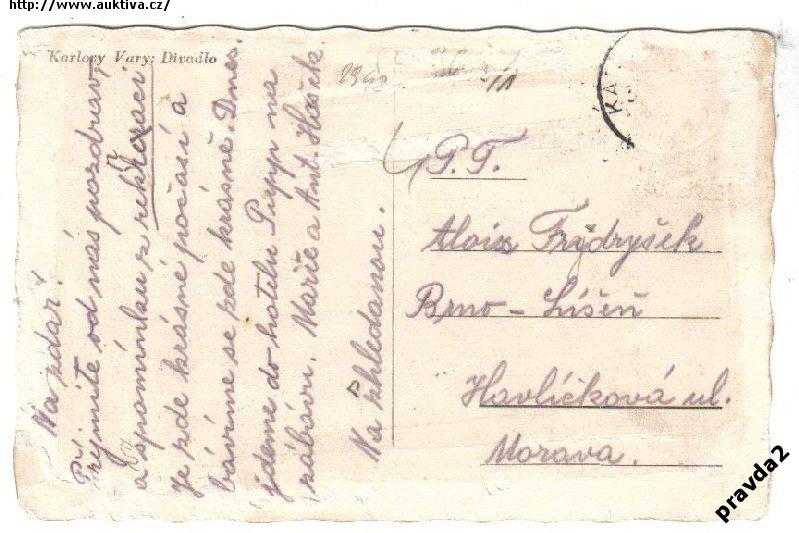 http://www.auktiva.cz/
Karlovy Vary: Divadlo
Na zdar!
Přijmite od nás pozdrav,
a vpomínku z rekreaci
je zde krásné počasí a
bavíme se zde krásně. Dnes
jdeme do hotelu Pupp na
zábávu. Marie a Ant. Hašek.
Na shledanou.
P. T.
Alois Frýdryšek
Brno - Líšeň
Havlíčková ul.
Morava.
pravda2